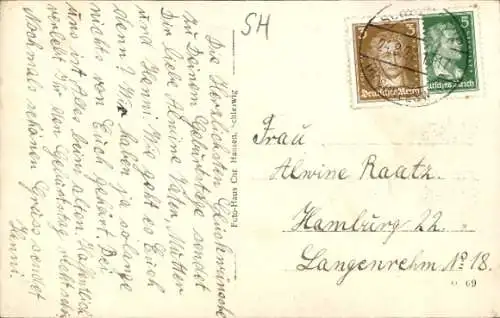 SH
Die herzlichsten Glückwünsche
zu Deinem Geburtstage sendet
Dir liebe Alwine Vater Mutter
und Hanni. Wie geht es Euch
denn? Wir haben ja solange
nichts von Euch gehört. Bei
uns ist Alles beim alten. Hoffentlich
verlebt Ihr den Geburtstag recht
Nochmals schönen Gruss sendet
Hanni.
Foto-Haus Chr. Hansen, Schleswig
3
Deutsches Reich
5
Deutsches Reich
Frau
Alwine Raatz
Hamburg 22.
Langenrehm No 18.
69